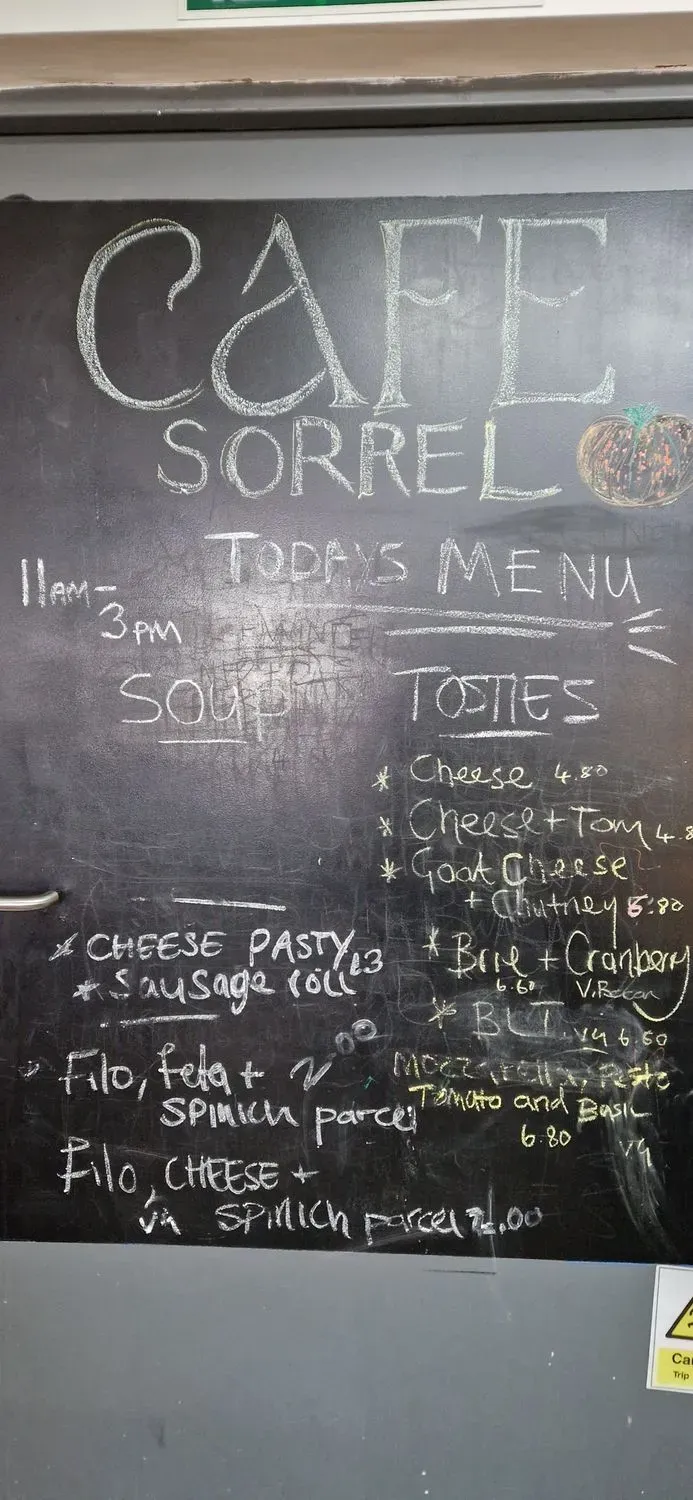 CAFE
SORREL
TODAYS MENU
11AM-
3PM
SOUP
TOSTIES
* Cheese 4.80
* Cheese + Tom 4.8
* Goat Cheese
+ Chutney 6.80
* Brie + Cranberry
6.60 V.Bacon
* BLT V4 6.60
Mozzarella, Pesto
Tomato and Basil
6.80 V4
* CHEESE PASTY £3
* Sausage roll
Filo, feta + 2.00
SPINICH parcel
Filo, CHEESE +
V4 SPINICH parcel 2.00
Ca
Trip